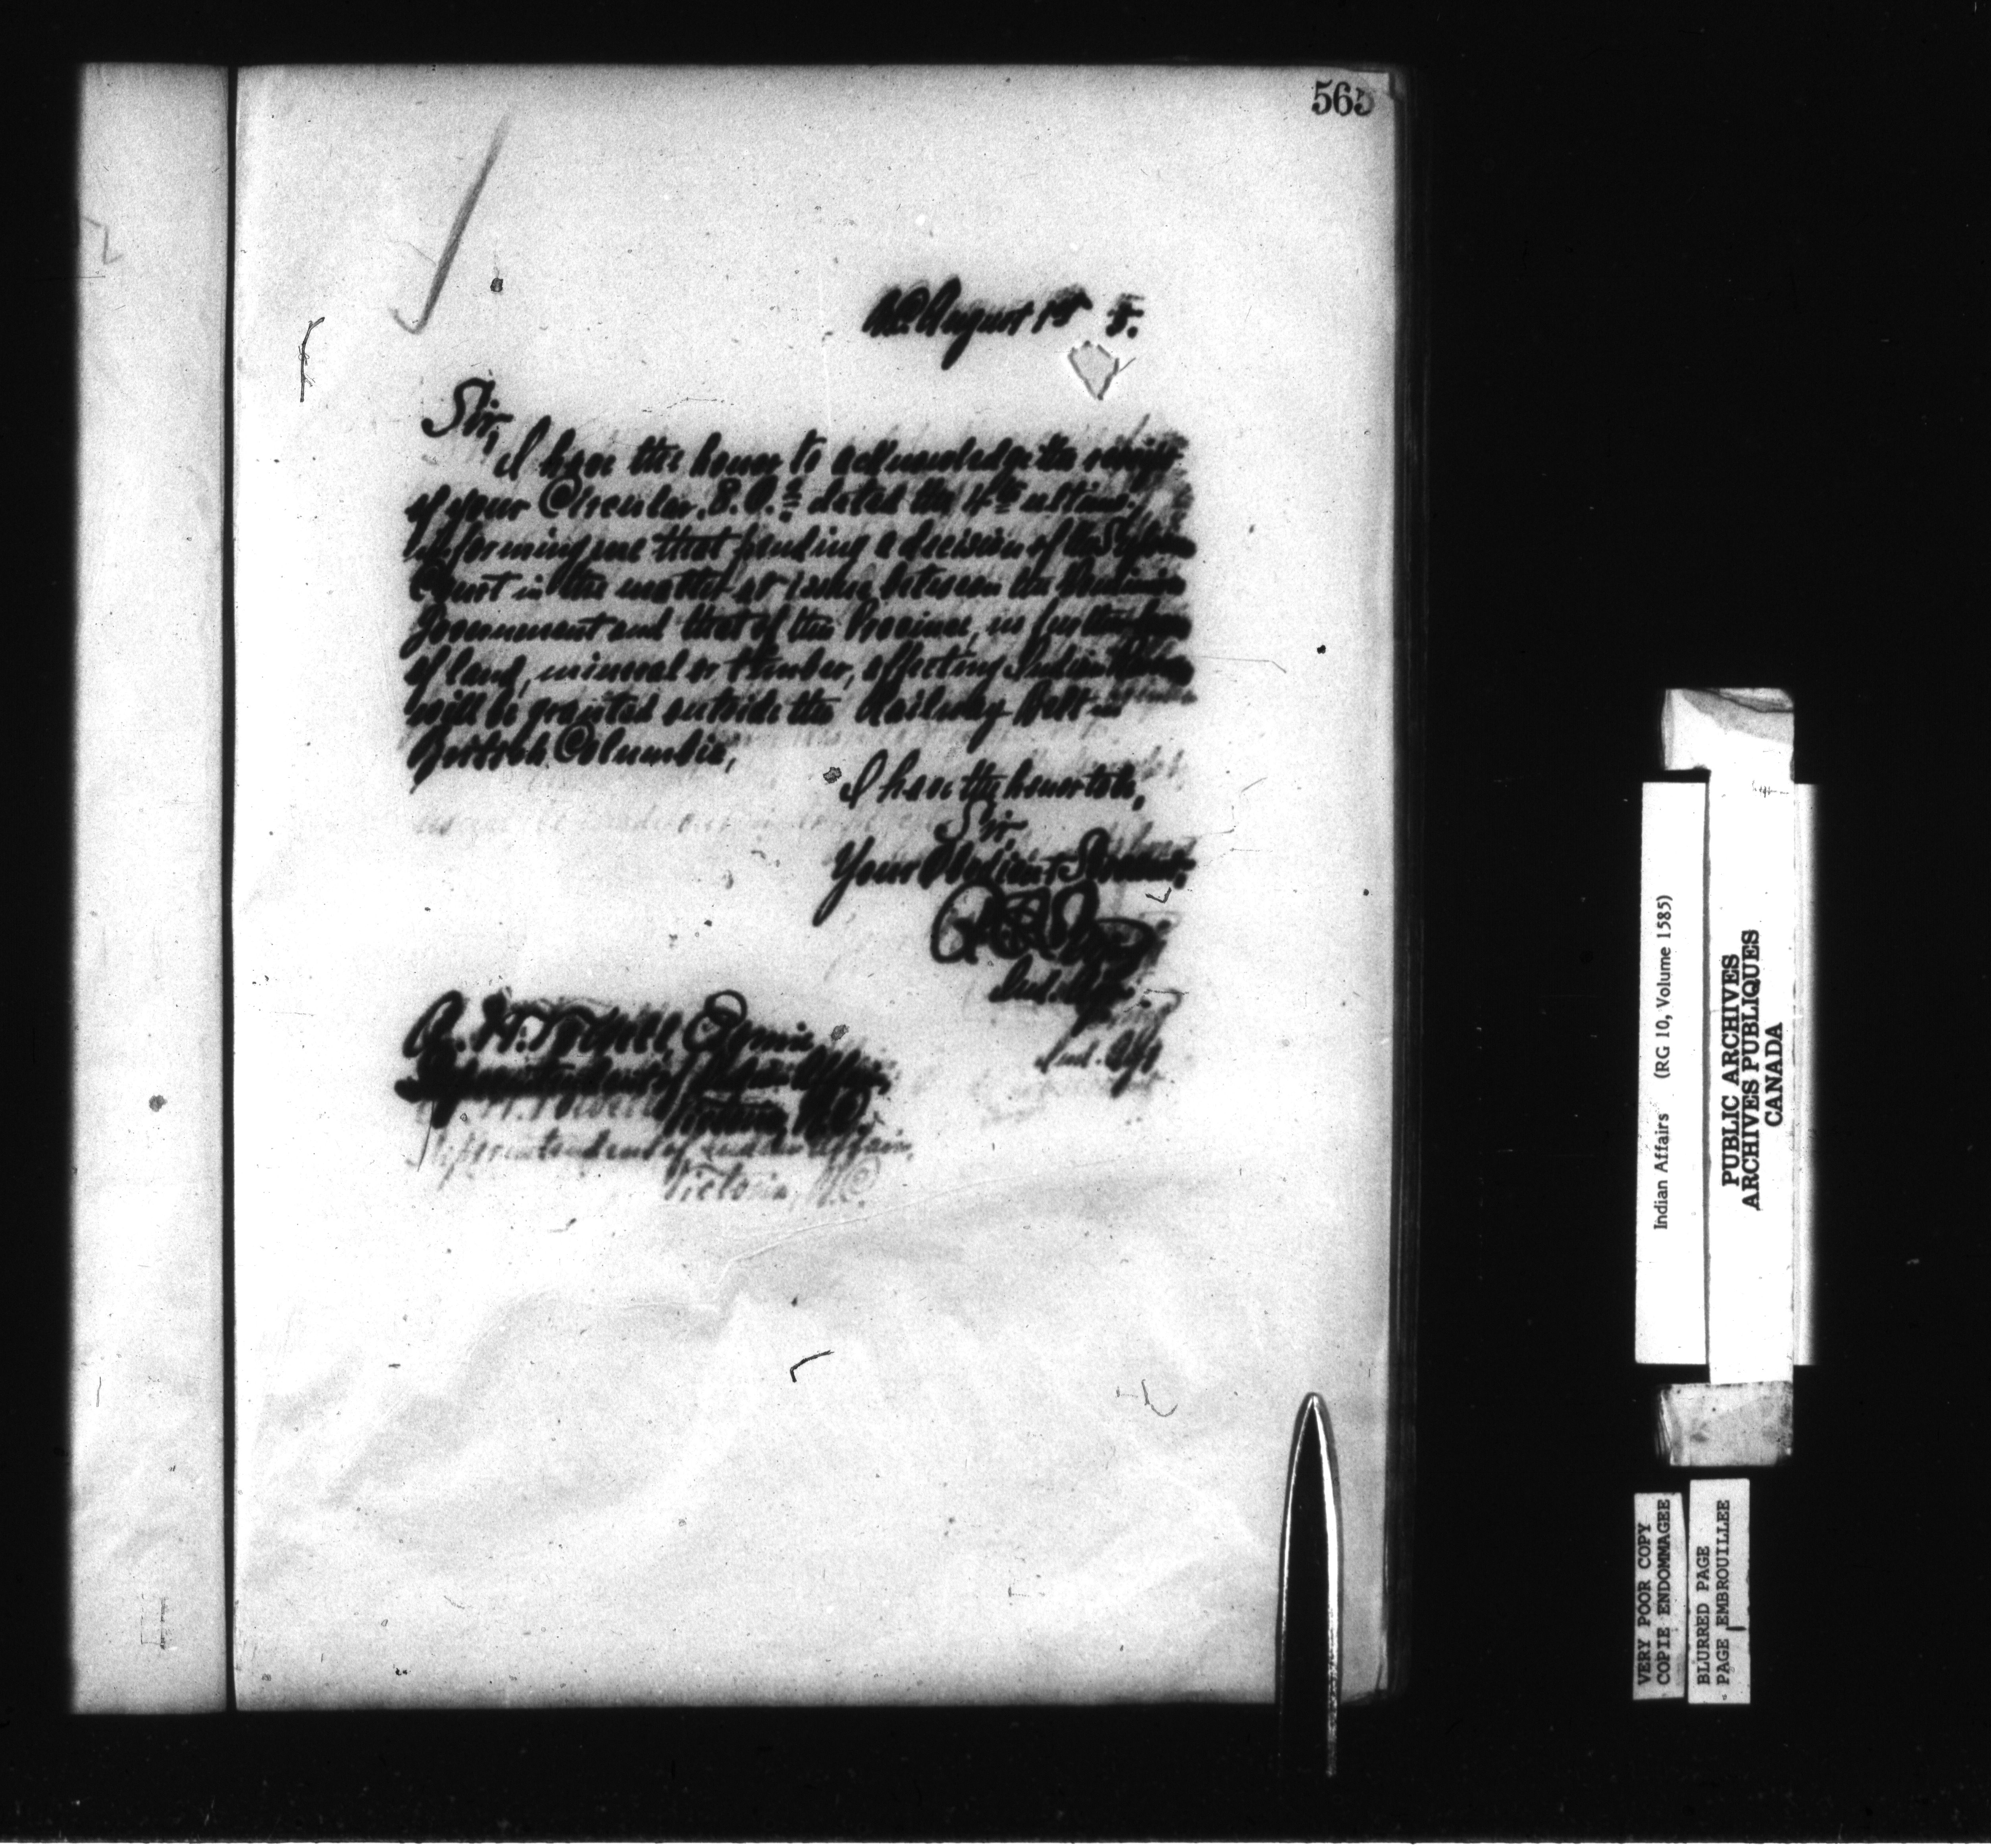 565
August 1st 5.
Sir,
I have the honor to acknowledge the receipt
of your Circular. dated the 4th ultimo.
informing me that pending a decision of the
Court in the matter at issue between the Dominion
Government and that of the Province, no further
of land, mineral or timber, affecting Indian
will be granted outside the Railway Belt in
British Columbia,
I have the honor to be,
Sir,
Your Obedient Servant,
Ind. Agt.
Ind. Agt
Superintendent of Indian Affairs,
Victoria, B.C.
Superintendent of Indian Affairs.
Victoria, B.C.
Indian Affairs (RG 10, Volume 1585)
PUBLIC ARCHIVES
ARCHIVES PUBLIQUES
CANADA
VERY POOR COPY
COPIE ENDOMMAGEE
BLURRED PAGE
PAGE EMBROUILLEE